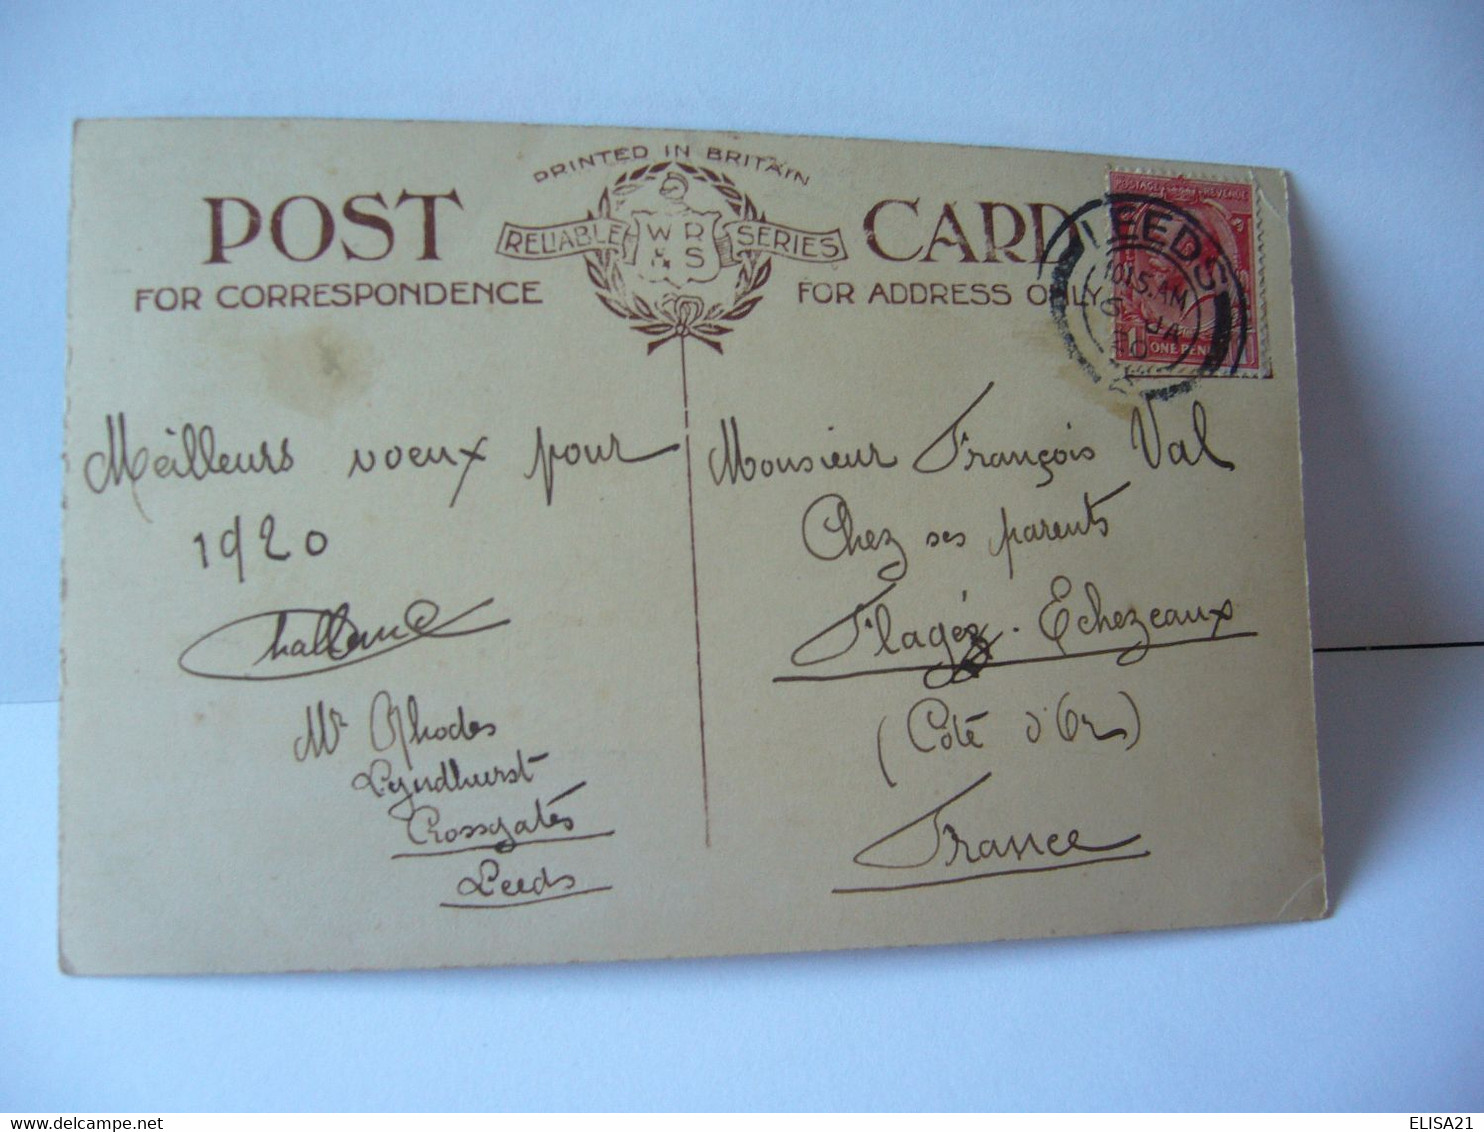 PRINTED IN BRITAIN
POST CARD
RELIABLE WR & S SERIES
FOR CORRESPONDENCE
FOR ADDRESS ONLY
POSTAGE REVENUE
LEEDS
10.15 AM
JA
20
ONE PENNY
Meilleurs voeux pour
1920
Mr Rhodes
Lyndhurst
Crossgates
Leeds
Monsieur François Val
Chez ses parents
Flagéz. Echezeaux
(Côte d'Or)
France
ELISA21